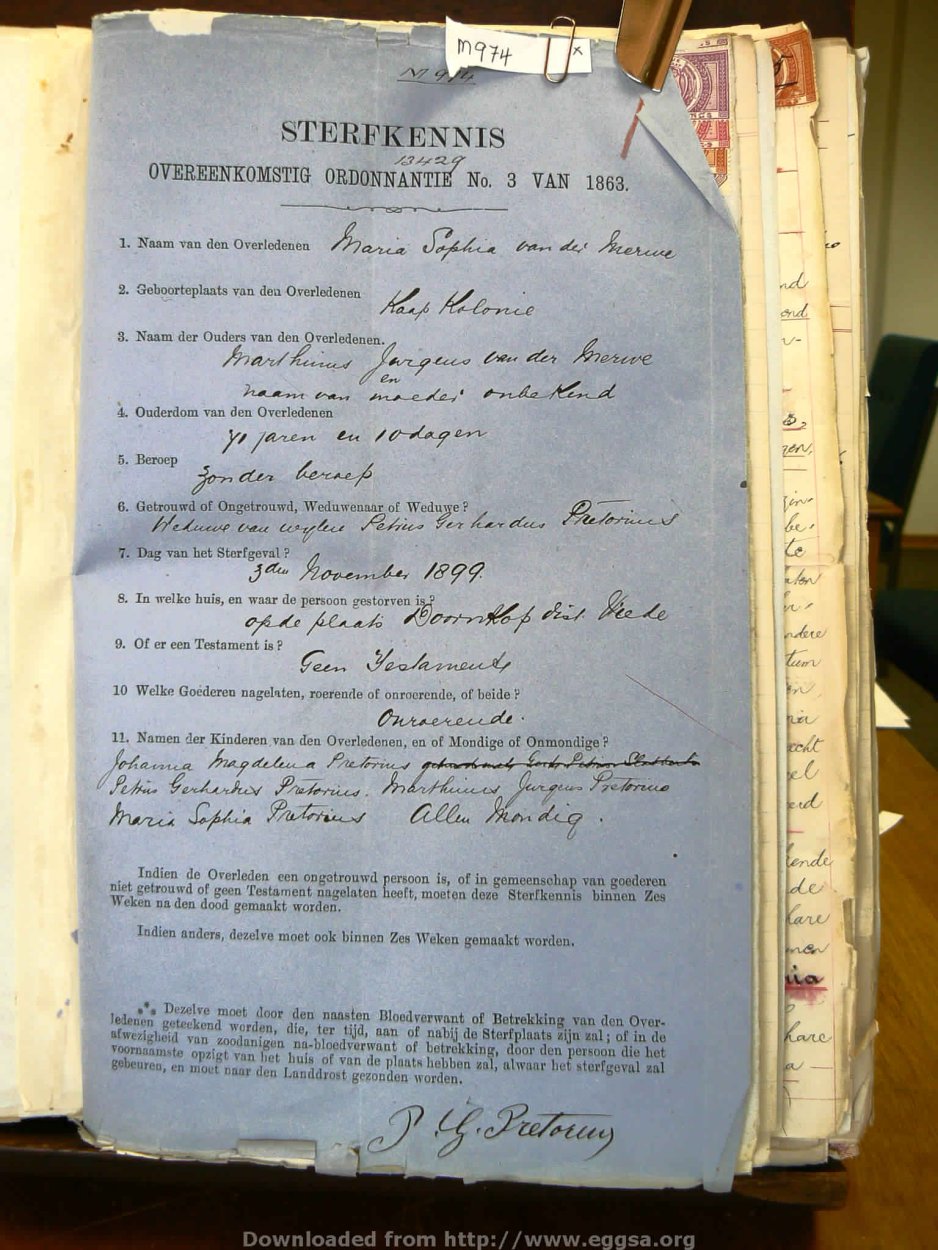 M974 x
M 974
STERFKENNIS
13429
OVEREENKOMSTIG ORDONNANTIE No. 3 VAN 1863.
1. Naam van den Overledenen Maria Sophia van der Merwe
2. Geboorteplaats van den Overledenen
Kaap Kolonie
3. Naam der Ouders van den Overledenen.
Marthinus Jurgens van der Merwe
en
naam van moeder onbekend
4. Ouderdom van den Overledenen
71 jaren en 10 dagen
5. Beroep
Zonder beroep
6. Getrouwd of Ongetrouwd, Weduwenaar of Weduwe?
Weduwe van wylen Petrus Gerhardus Pretorius
7. Dag van het Sterfgeval?
3den November 1899.
8. In welke huis, en waar de persoon gestorven is?
op de plaats Doornkop dist. Vrede
9. Of er een Testament is?
Geen Testament
10 Welke Goederen nagelaten, roerende of onroerende, of beide?
Onroerende.
11. Namen der Kinderen van den Overledenen, en of Mondige of Onmondige?
Johanna Magdelena Pretorius
Petrus Gerhardus Pretorius. Marthinus Jurgens Pretorius
Maria Sophia Pretorius Allen Mondig.
Indien de Overleden een ongetrouwd persoon is, of in gemeenschap van goederen
niet getrouwd of geen Testament nagelaten heeft, moeten deze Sterfkennis binnen Zes
Weken na den dood gemaakt worden.
Indien anders, dezelve moet ook binnen Zes Weken gemaakt worden.
⁂ Dezelve moet door den naasten Bloedverwant of Betrekking van den Over-
ledenen geteekend worden, die, ter tijd, aan of nabij de Sterfplaats zijn zal; of in de
afwezigheid van zoodanigen na-bloedverwant of betrekking, door den persoon die het
voornaamste opzigt van het huis of van de plaats hebben zal, alwaar het sterfgeval zal
gebeuren, en moet naar den Landdrost gezonden worden.
P. G. Pretorius
Downloaded from http://www.eggsa.org